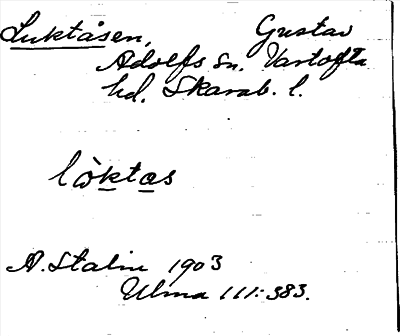 Luktåsen, Gustav
Adolfs sn. Vartofta
hd. Skarab. l.
lòktas
A. Stalin 1903
Ulma 111:383.